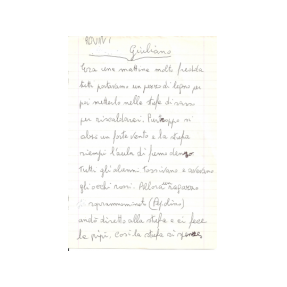 Giuliano
Era una mattina molto fredda
tutti portavamo un pezzo di legno per
per metterlo nella stufa di
per riscaldarci. Purtroppo si
alzò un forte vento e la stufa
riempì l'aula di fumo denso
tutti gli alunni tossivano e avevano
gli occhi rossi. Allora un ragazzo
soprannominato
andò diretto alla stufa e ci fece
la pipì. Così la stufa si spense.